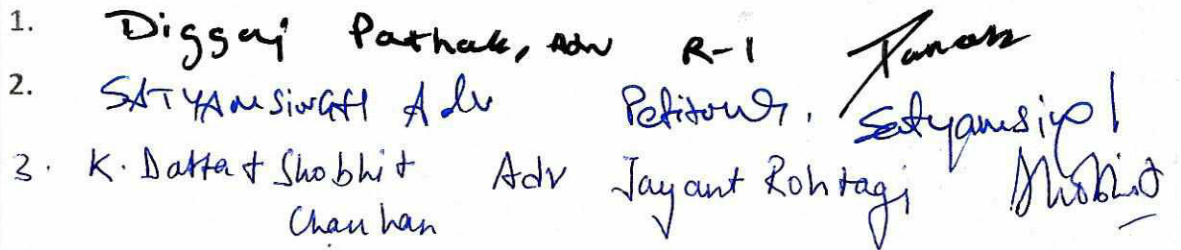 1. Diggaj Pathak, Adv R-1
2. SATYAM SINGH Adv Petitioner. Satyamsingh
3. K. Datta & Shobhit Adv Jayant Rohtagi Shobhit
Chauhan